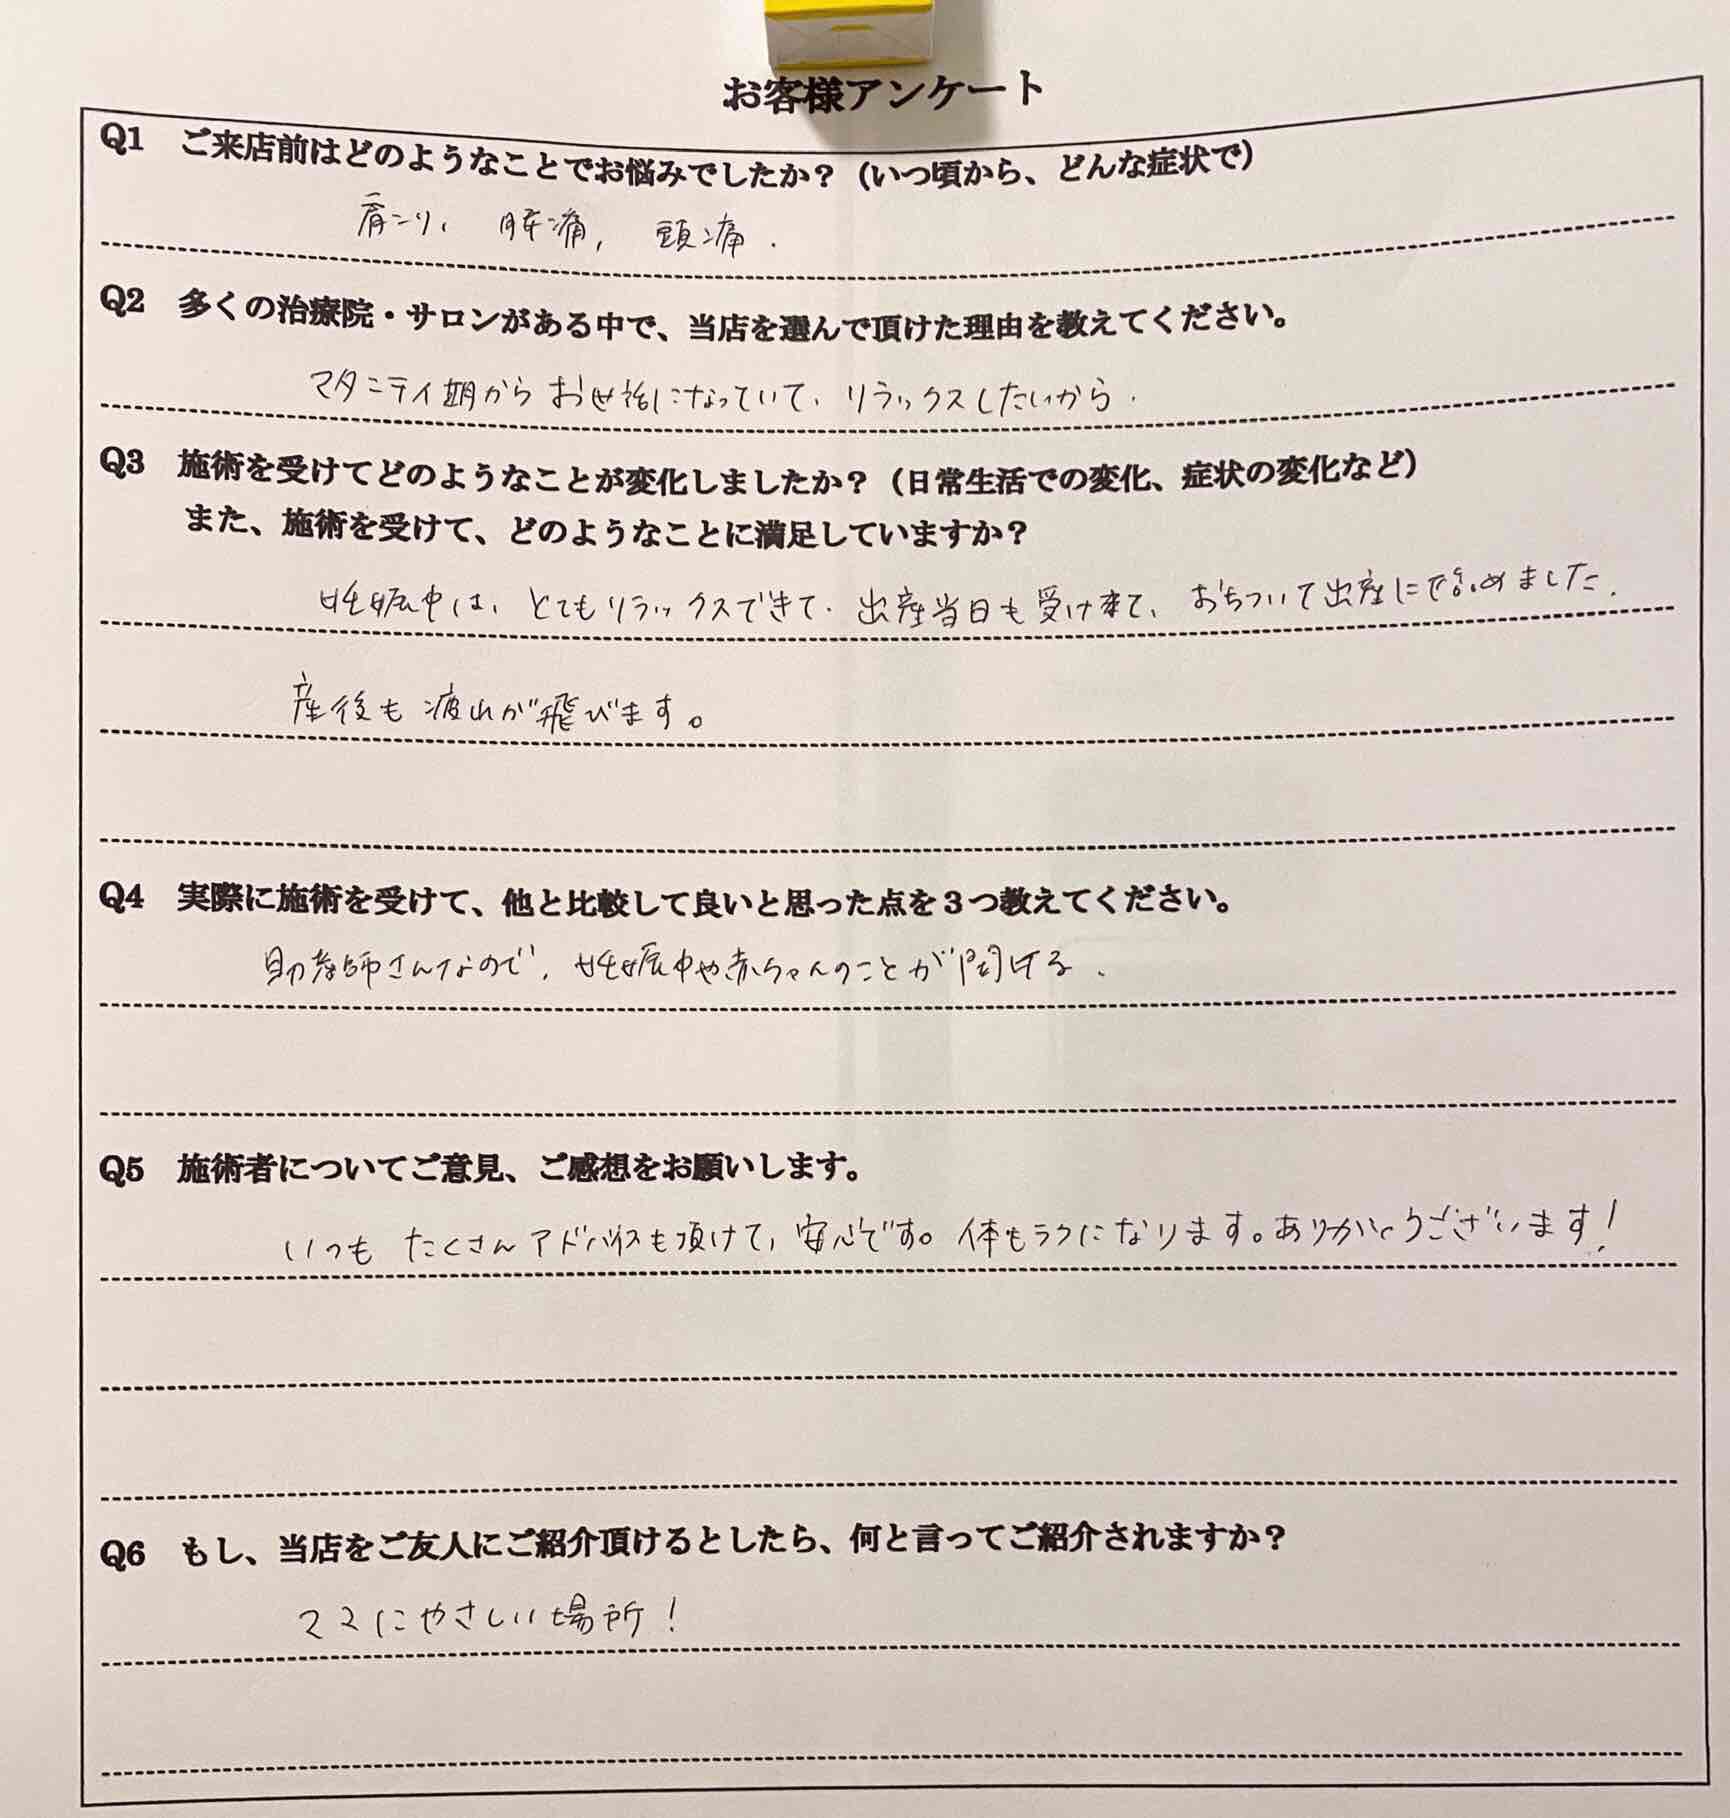 お客様アンケート
Q1 ご来店前はどのようなことでお悩みでしたか？（いつ頃から、どんな症状で）
肩こり、腰痛、頭痛.
Q2 多くの治療院・サロンがある中で、当店を選んで頂けた理由を教えてください。
マタニティ期からお世話になっていて、リラックスしたいから.
Q3 施術を受けてどのようなことが変化しましたか？（日常生活での変化、症状の変化など）
また、施術を受けて、どのようなことに満足していますか？
妊娠中は、とてもリラックスできて、出産当日も受け来て、おちついて出産にできめました.
産後も疲れが飛びます。
Q4 実際に施術を受けて、他と比較して良いと思った点を３つ教えてください。
助産師さんなので、妊娠中や赤ちゃんのことが聞ける.
Q5 施術者についてご意見、ご感想をお願いします。
いつもたくさんアドバイスも頂けて、安心です。体もラクになります。ありがとうございます！
Q6 もし、当店をご友人にご紹介頂けるとしたら、何と言ってご紹介されますか？
ママにやさしい場所！